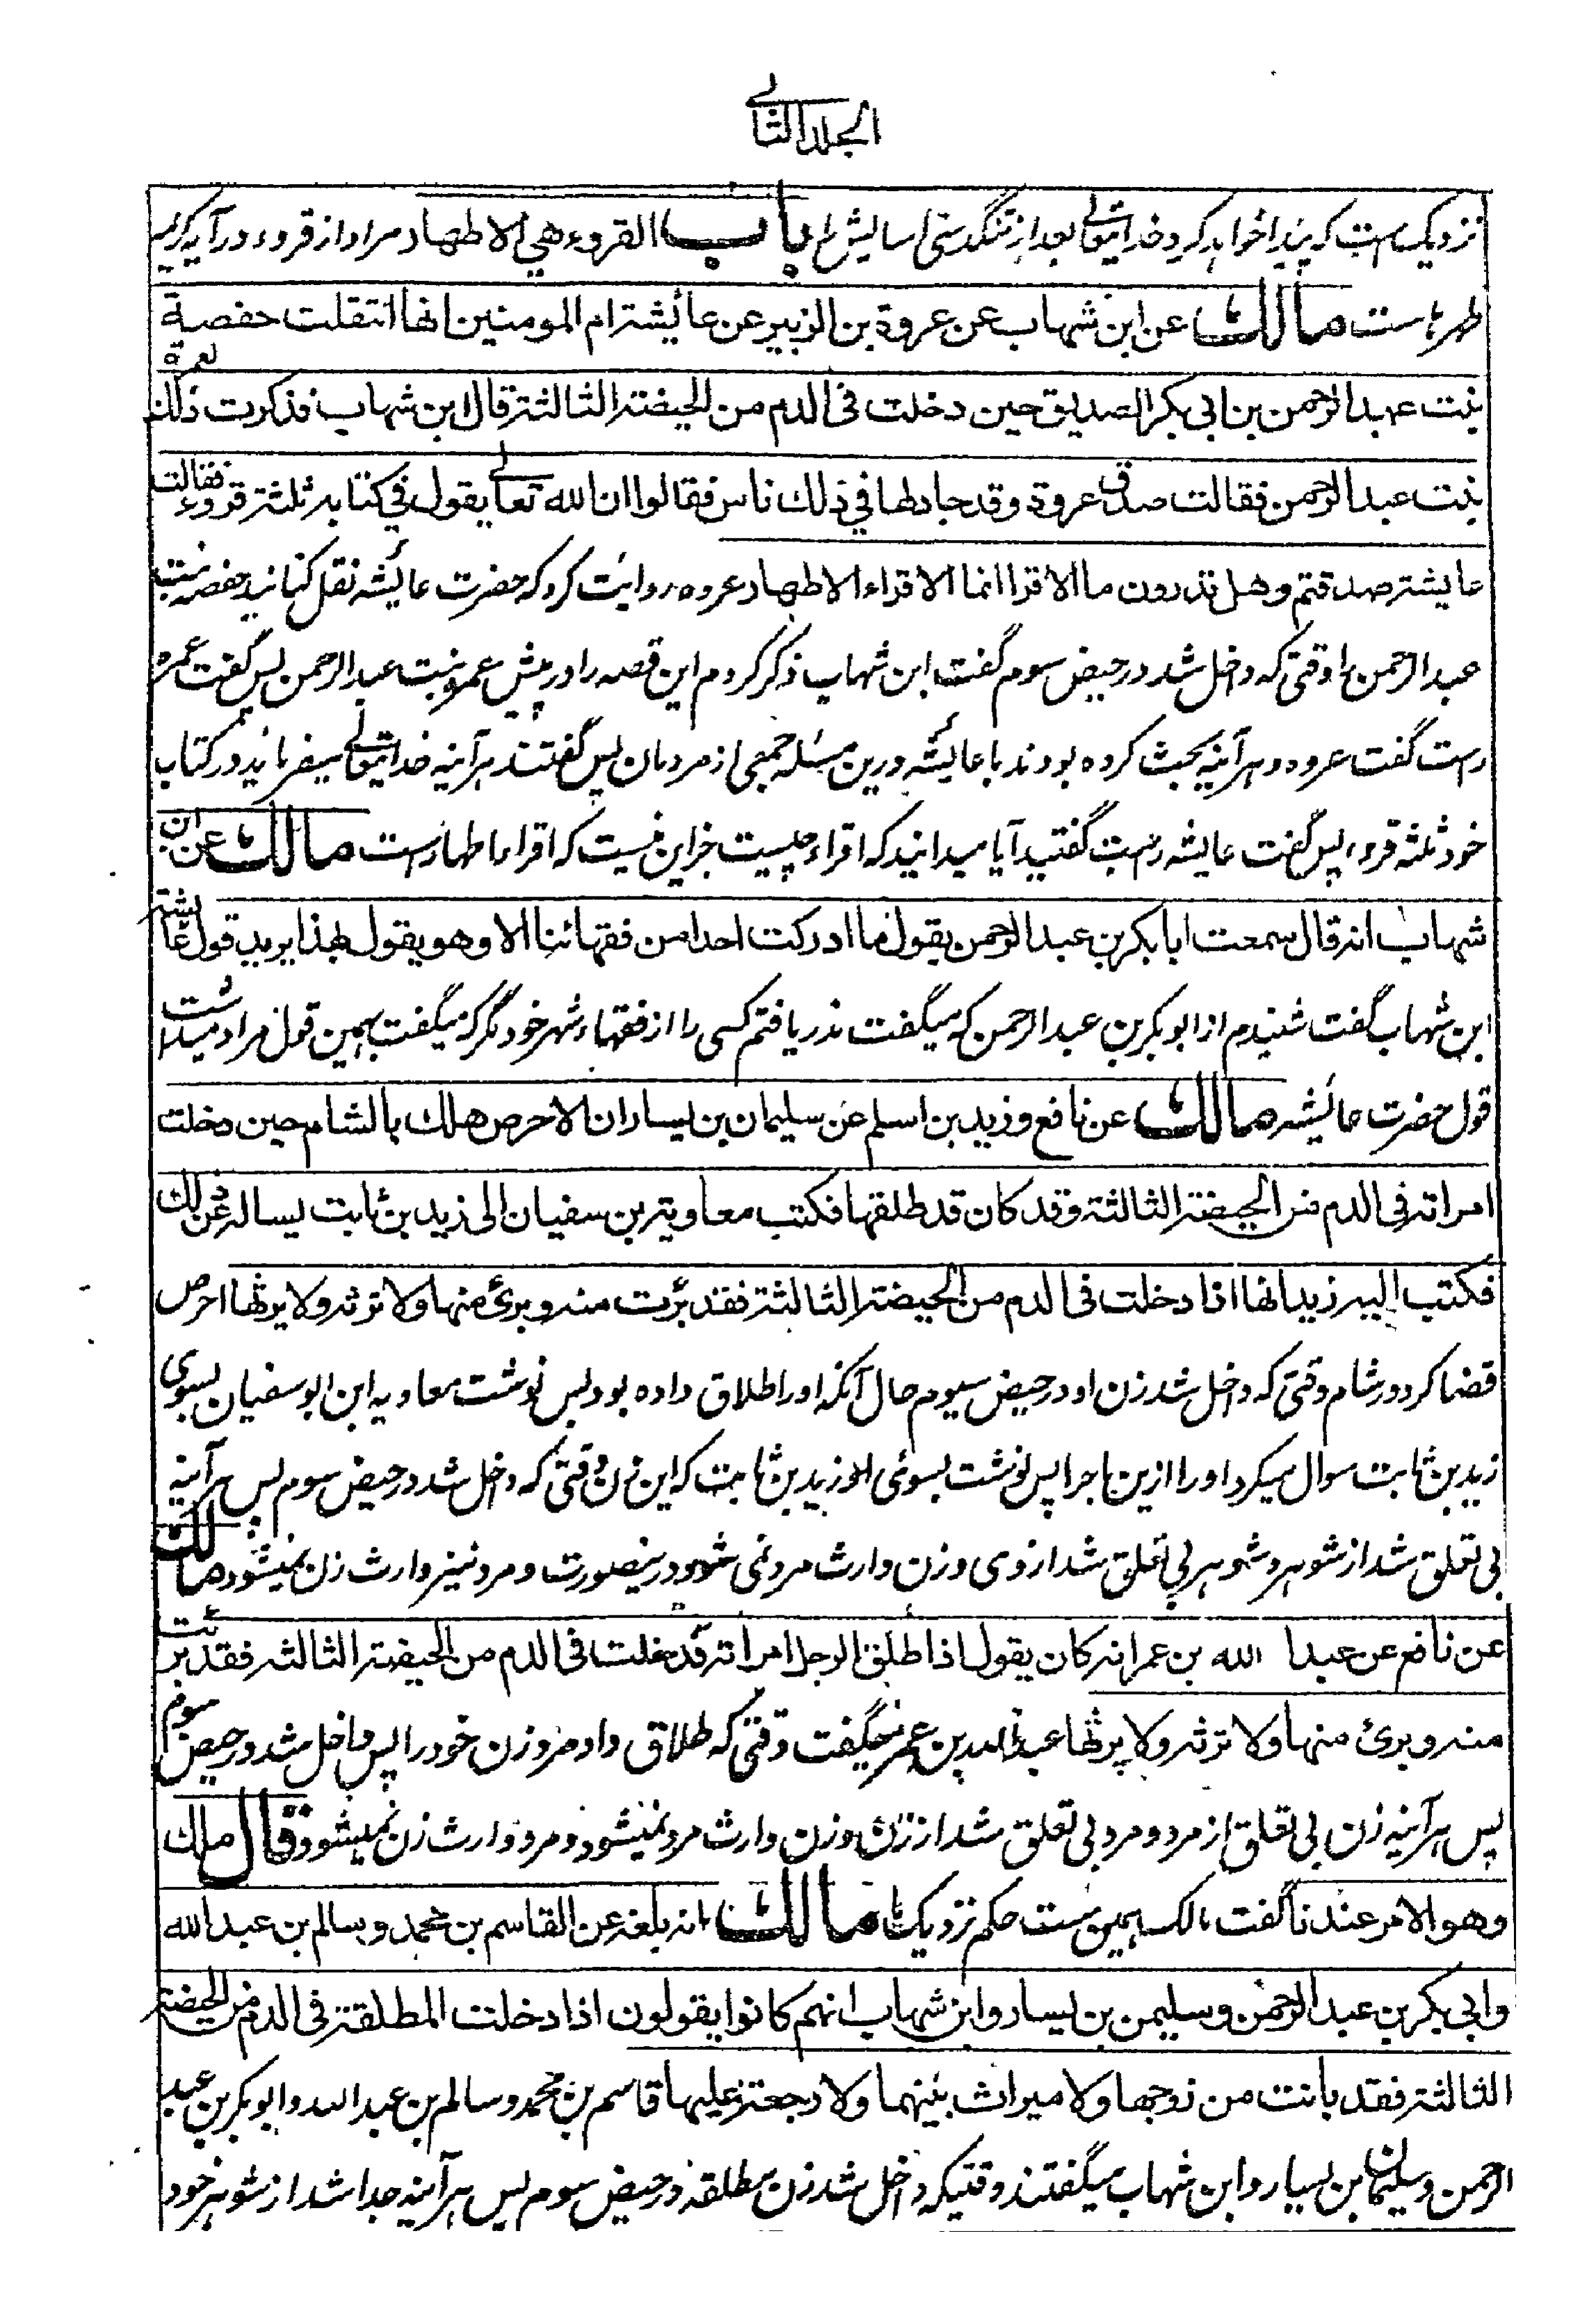 الجلد الثانی
نزدیک ست که پیدا خواهد کرد خدایتعالی بعد از تنگدستی اسالیش را باب القروء هي الاطهار مراد از قروء در آیه کریمه
طهرهاست مالك عن ابن شهاب عن عروة بن الزبير عن عائيشة ام المومنين انها انتقلت حفصة
بنت عبد الرحمن بن ابي بكر الصديق حين دخلت في الدم من الحيضة الثالثة قال ابن شهاب فذكرت ذلك لعمرة
بنت عبد الرحمن فقالت صدق عروة وقد جادلها في ذلك ناس فقالوا ان الله تعالى يقول في كتابه ثلثة قروء فقالت
عايشة صدقتم وهل تدرون ما الاقرا انما الاقراء الاطهار عروه روایت کرد که حضرت عائیشه نقل کنانید حفصه بنت
عبد الرحمن را وقتی که داخل شد در حیض سوم گفت ابن شهاب ذکر کردم این قصه را در پیش عمره بنت عبد الرحمن پس گفت عمره
راست گفت عروه و هر آئینه بحث کرده بودند با عائیشه درین مسئله جمعی از مردمان پس گفتند هر آئینه خدایتعالی میفرماید در کتاب
خود ثلثه قروء پس گفت عایشه راست گفتید آیا میدانید که اقراء چیست جز این نیست که اقراء اطهارست مالك عن ابن
شهاب انه قال سمعت ابا بكر بن عبد الرحمن يقول ما ادركت احدا من فقهائنا الا وهو يقول بهذا يريد قول عائشة
ابن شهاب گفت شنیدم از ابو بکر بن عبد الرحمن که میگفت ندریافتم کسی را از فقهاء شهر خود مگر که میگفت بهمین قول مراد میداشت
قول حضرت عائیشه مالك عن نافع وزيد بن اسلم عن سليمان بن يسار ان الاحوص هلك بالشام حين دخلت
امراته في الدم من الحيضة الثالثة وقد كان قد طلقها فكتب معاوية بن سفيان الى زيد بن ثابت يساله عن ذلك
فكتب اليه زيد انها اذا دخلت في الدم من الحيضة الثالثة فقد برئت منه وبرئ منها ولا ترثه ولا يرثها احرص
قضا کرد در شام وقتی که داخل شد زن او در حیض سیوم حال آنکه او را طلاق داده بود پس نوشت معاویه ابن ابو سفیان بسوی
زید بن ثابت سوال میکرد او را ازین ماجرا پس نوشت بسوئی او زید بن ثابت که این زن وقتی که داخل شد در حیض سوم پس هر آئینه
بی تعلق شد از شوهر و شوهر بی تعلق شد از وی و زن وارث مرد نمی شود درینصورت و مرد نیز وارث زن نمیشود مالك
عن نافع عن عبد الله بن عمر انه كان يقول اذا طلق الرجل امراته فدخلت في الدم من الحيضة الثالثه فقد برئت
منه وبرئ منها ولا ترثه ولا يرثها عبد الله بن عمر میگفت وقتی که طلاق داد مرد زن خود را پس داخل شد در حیض سوم
پس هر آئینه زن بی تعلق از مرد و مرد بی تعلق شد از زن و زن وارث مرد نمیشود و مرد وارث زن نمیشود قال مالك
وهو الامر عندنا گفت مالک همین ست حکم نزدیک ما مالك انه بلغه عن القاسم بن محمد وسالم بن عبد الله
وابي بكر بن عبد الرحمن وسليمن بن يسار وابن شهاب انهم كانوا يقولون اذا دخلت المطلقة في الدم من الحيضة
الثالثة فقد بانت من زوجها ولا ميراث بينهما ولا رجعة عليها قاسم بن محمد و سالم بن عبد الله و ابو بکر بن عبد
الرحمن و سلیمان بن یسار و ابن شهاب میگفتند وقتیکه داخل شد زن مطلقه در حیض سوم پس هر آئینه جدا شد از شوهر خود